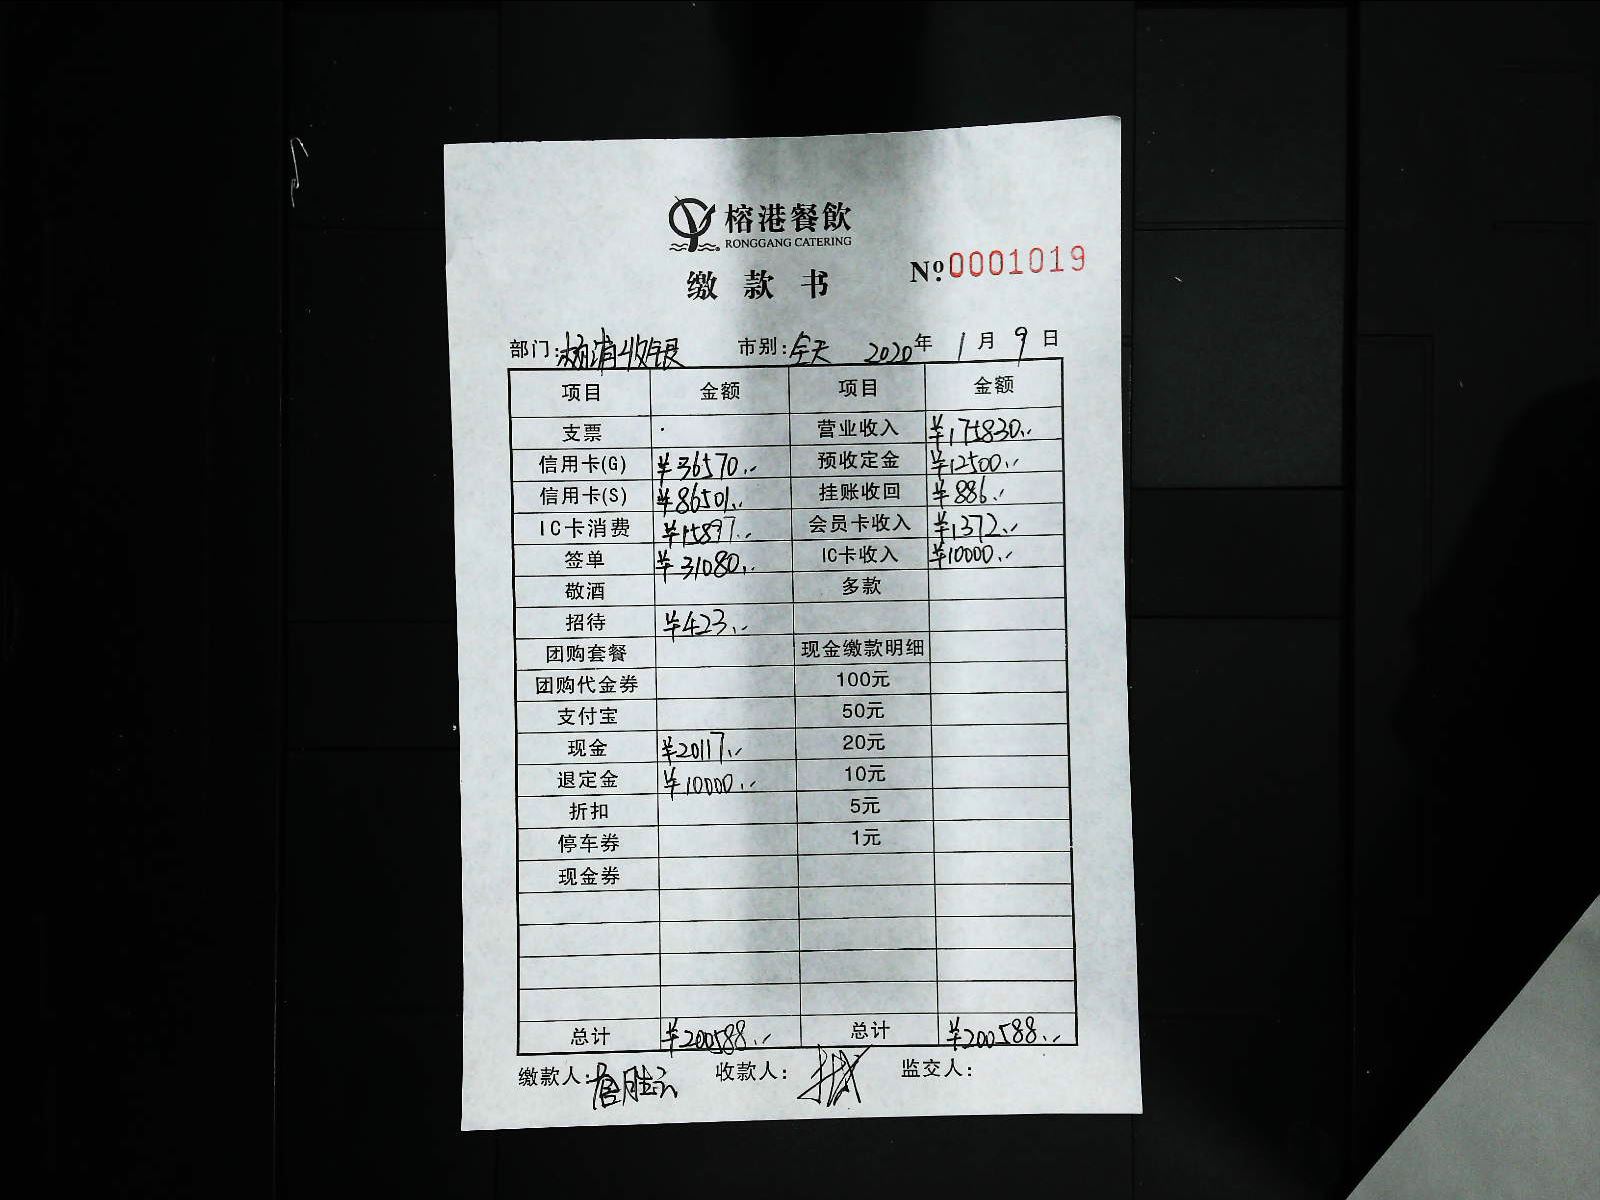 榕港餐飲
RONGGANG CATERING
缴款书
Nº 0001019
部门:杨消收银 市别:全天 2020年1月9日
项目 金额 项目 金额
支票 营业收入 ¥175830.-
信用卡(G) ¥36570.- 预收定金 ¥12500.-
信用卡(S) ¥86501.- 挂账收回 ¥886.-
IC卡消费 ¥15897.- 会员卡收入 ¥1372.-
签单 ¥31080.- IC卡收入 ¥10000.-
敬酒 多款
招待 ¥423.-
团购套餐 现金缴款明细
团购代金券 100元
支付宝 50元
现金 ¥20117.- 20元
退定金 ¥10000.- 10元
折扣 5元
停车券 1元
现金券
总计 ¥200588.- 总计 ¥200588.-
缴款人: 收款人: 监交人: